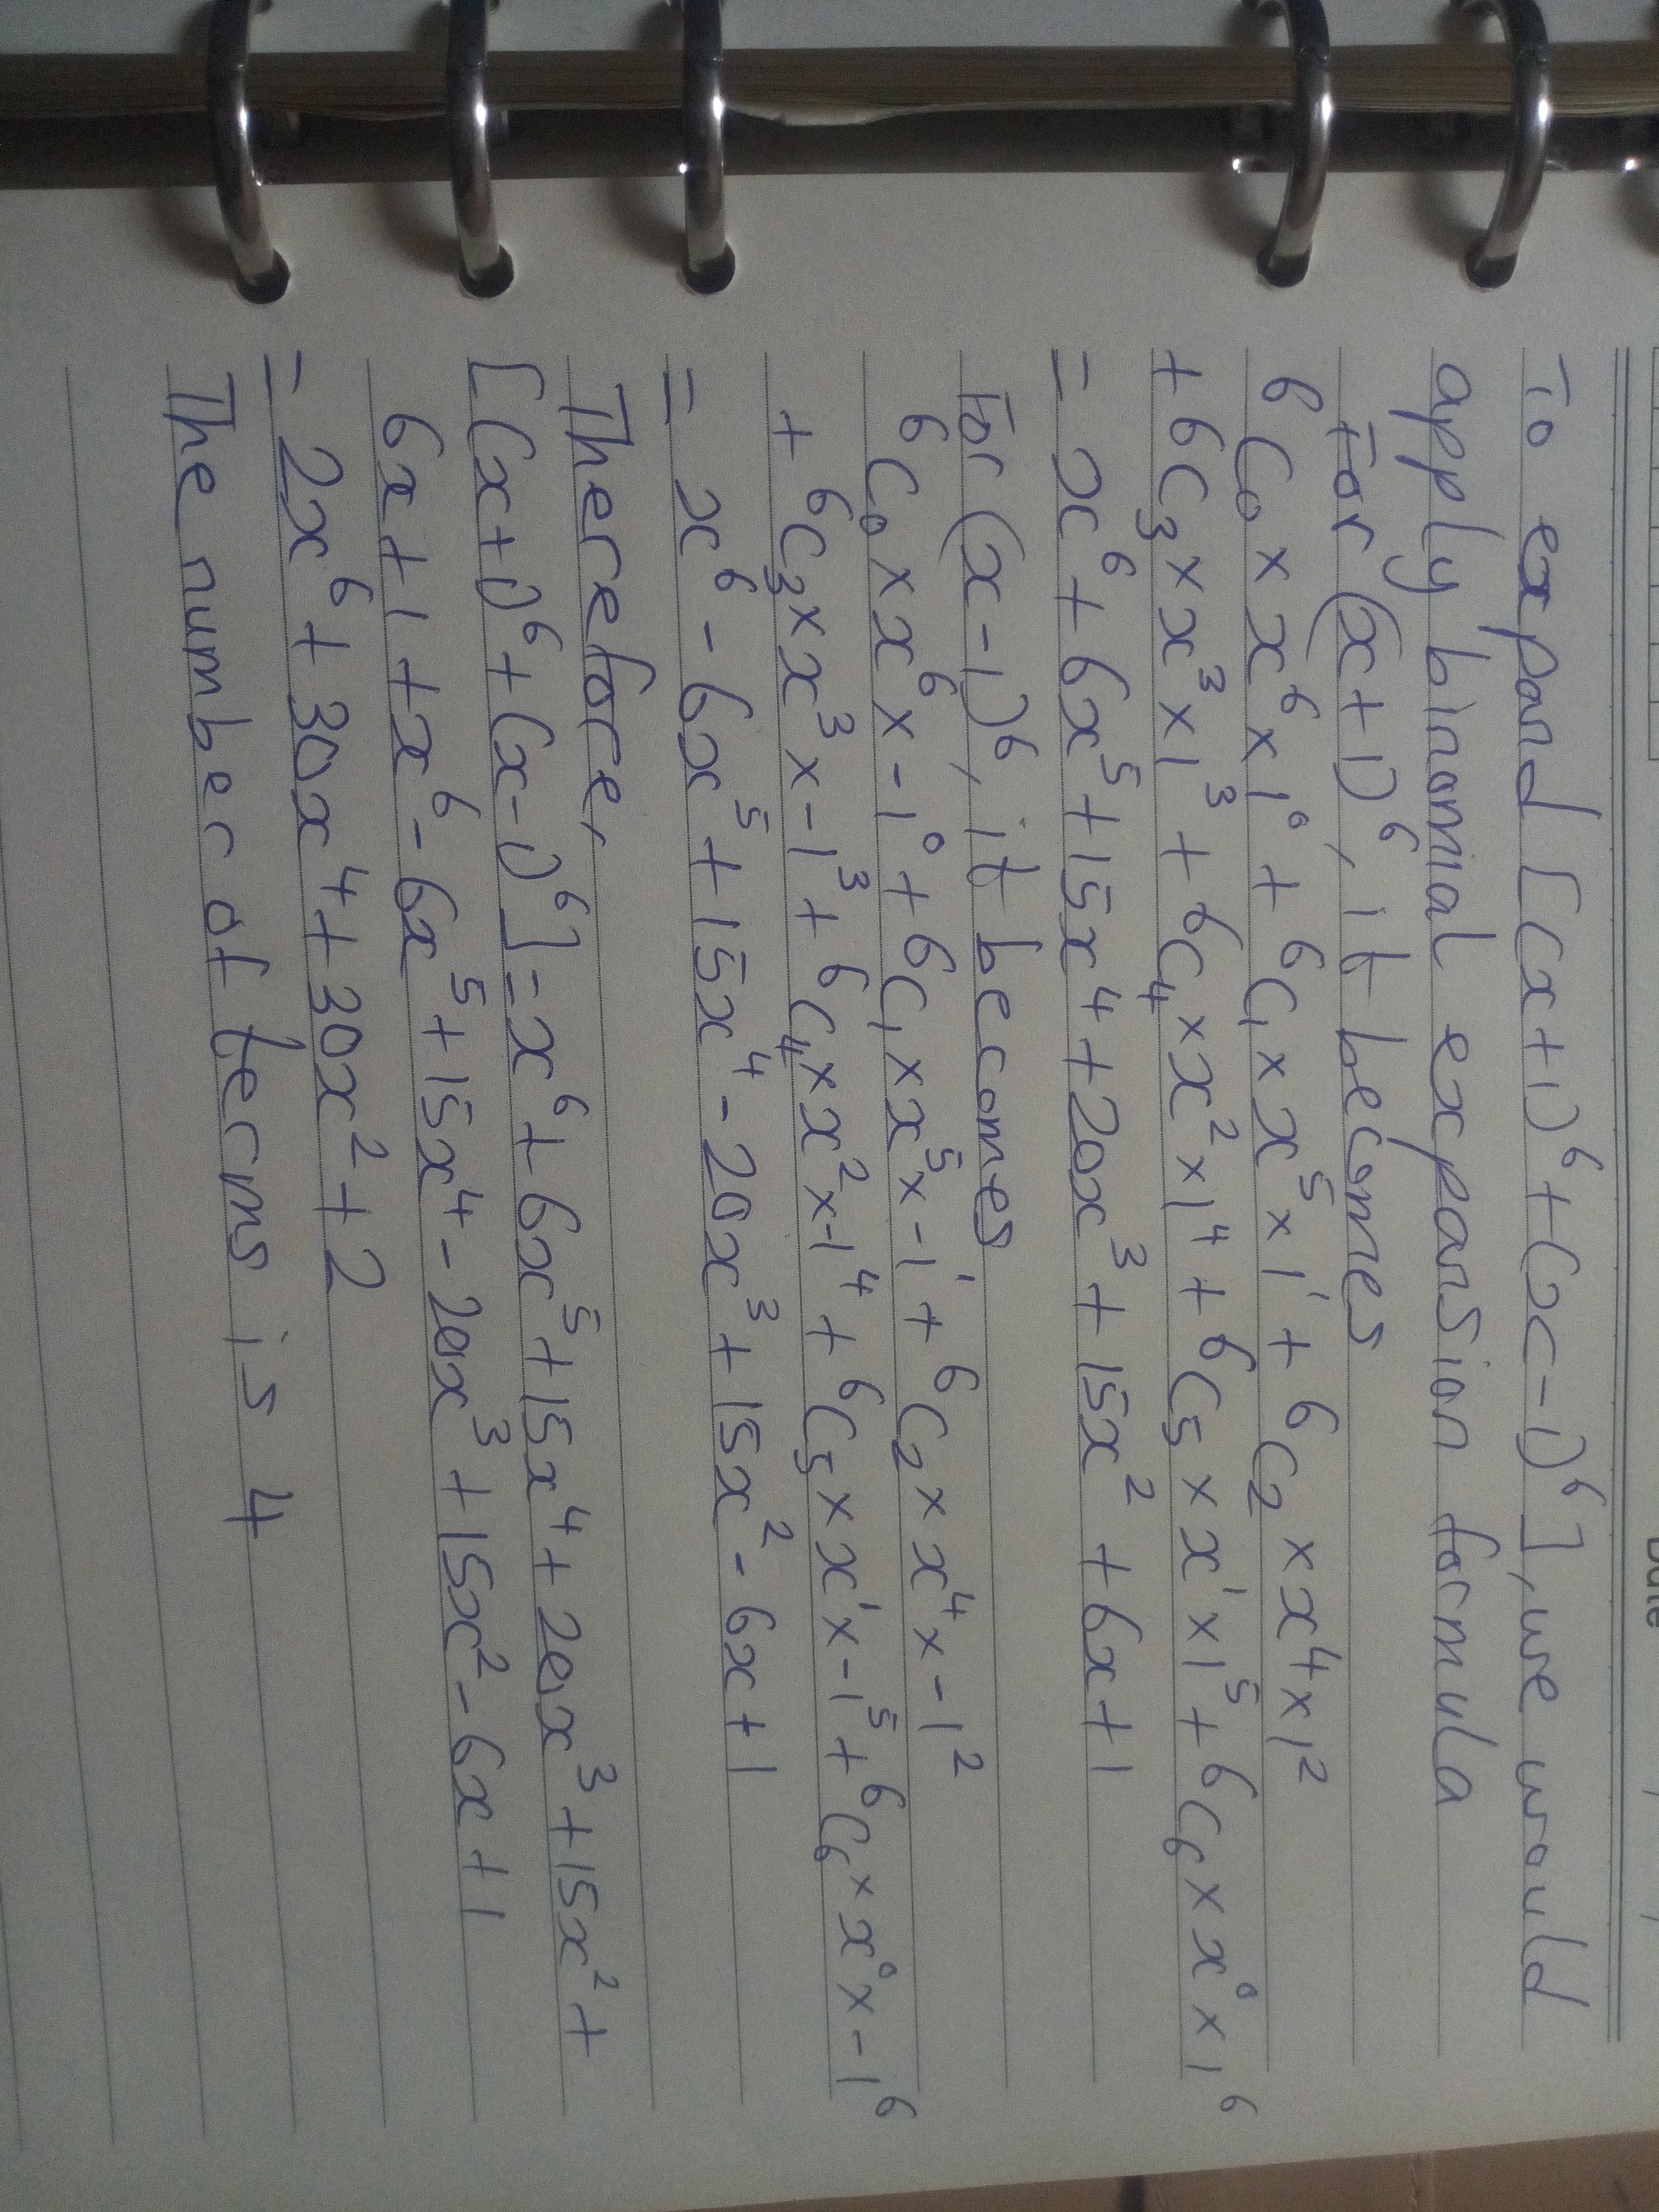 Date
To expand [(x+1)⁶+(x-1)⁶], we would
apply binomial expansion formula
For (x+1)⁶, it becomes
⁶C₀ × x⁶ × 1⁰ + ⁶C₁ × x⁵ × 1¹ + ⁶C₂ × x⁴ × 1²
+ ⁶C₃ × x³ × 1³ + ⁶C₄ × x² × 1⁴ + ⁶C₅ × x¹ × 1⁵ + ⁶C₆ × x⁰ × 1⁶
= x⁶ + 6x⁵ + 15x⁴ + 20x³ + 15x² + 6x + 1
For (x-1)⁶, it becomes
⁶C₀ × x⁶ × -1⁰ + ⁶C₁ × x⁵ × -1¹ + ⁶C₂ × x⁴ × -1²
+ ⁶C₃ × x³ × -1³ + ⁶C₄ × x² × -1⁴ + ⁶C₅ × x¹ × -1⁵ + ⁶C₆ × x⁰ × -1⁶
= x⁶ - 6x⁵ + 15x⁴ - 20x³ + 15x² - 6x + 1
Therefore,
[(x+1)⁶ + (x-1)⁶] = x⁶ + 6x⁵ + 15x⁴ + 20x³ + 15x² +
6x + 1 + x⁶ - 6x⁵ + 15x⁴ - 20x³ + 15x² - 6x + 1
= 2x⁶ + 30x⁴ + 30x² + 2
The number of terms is 4